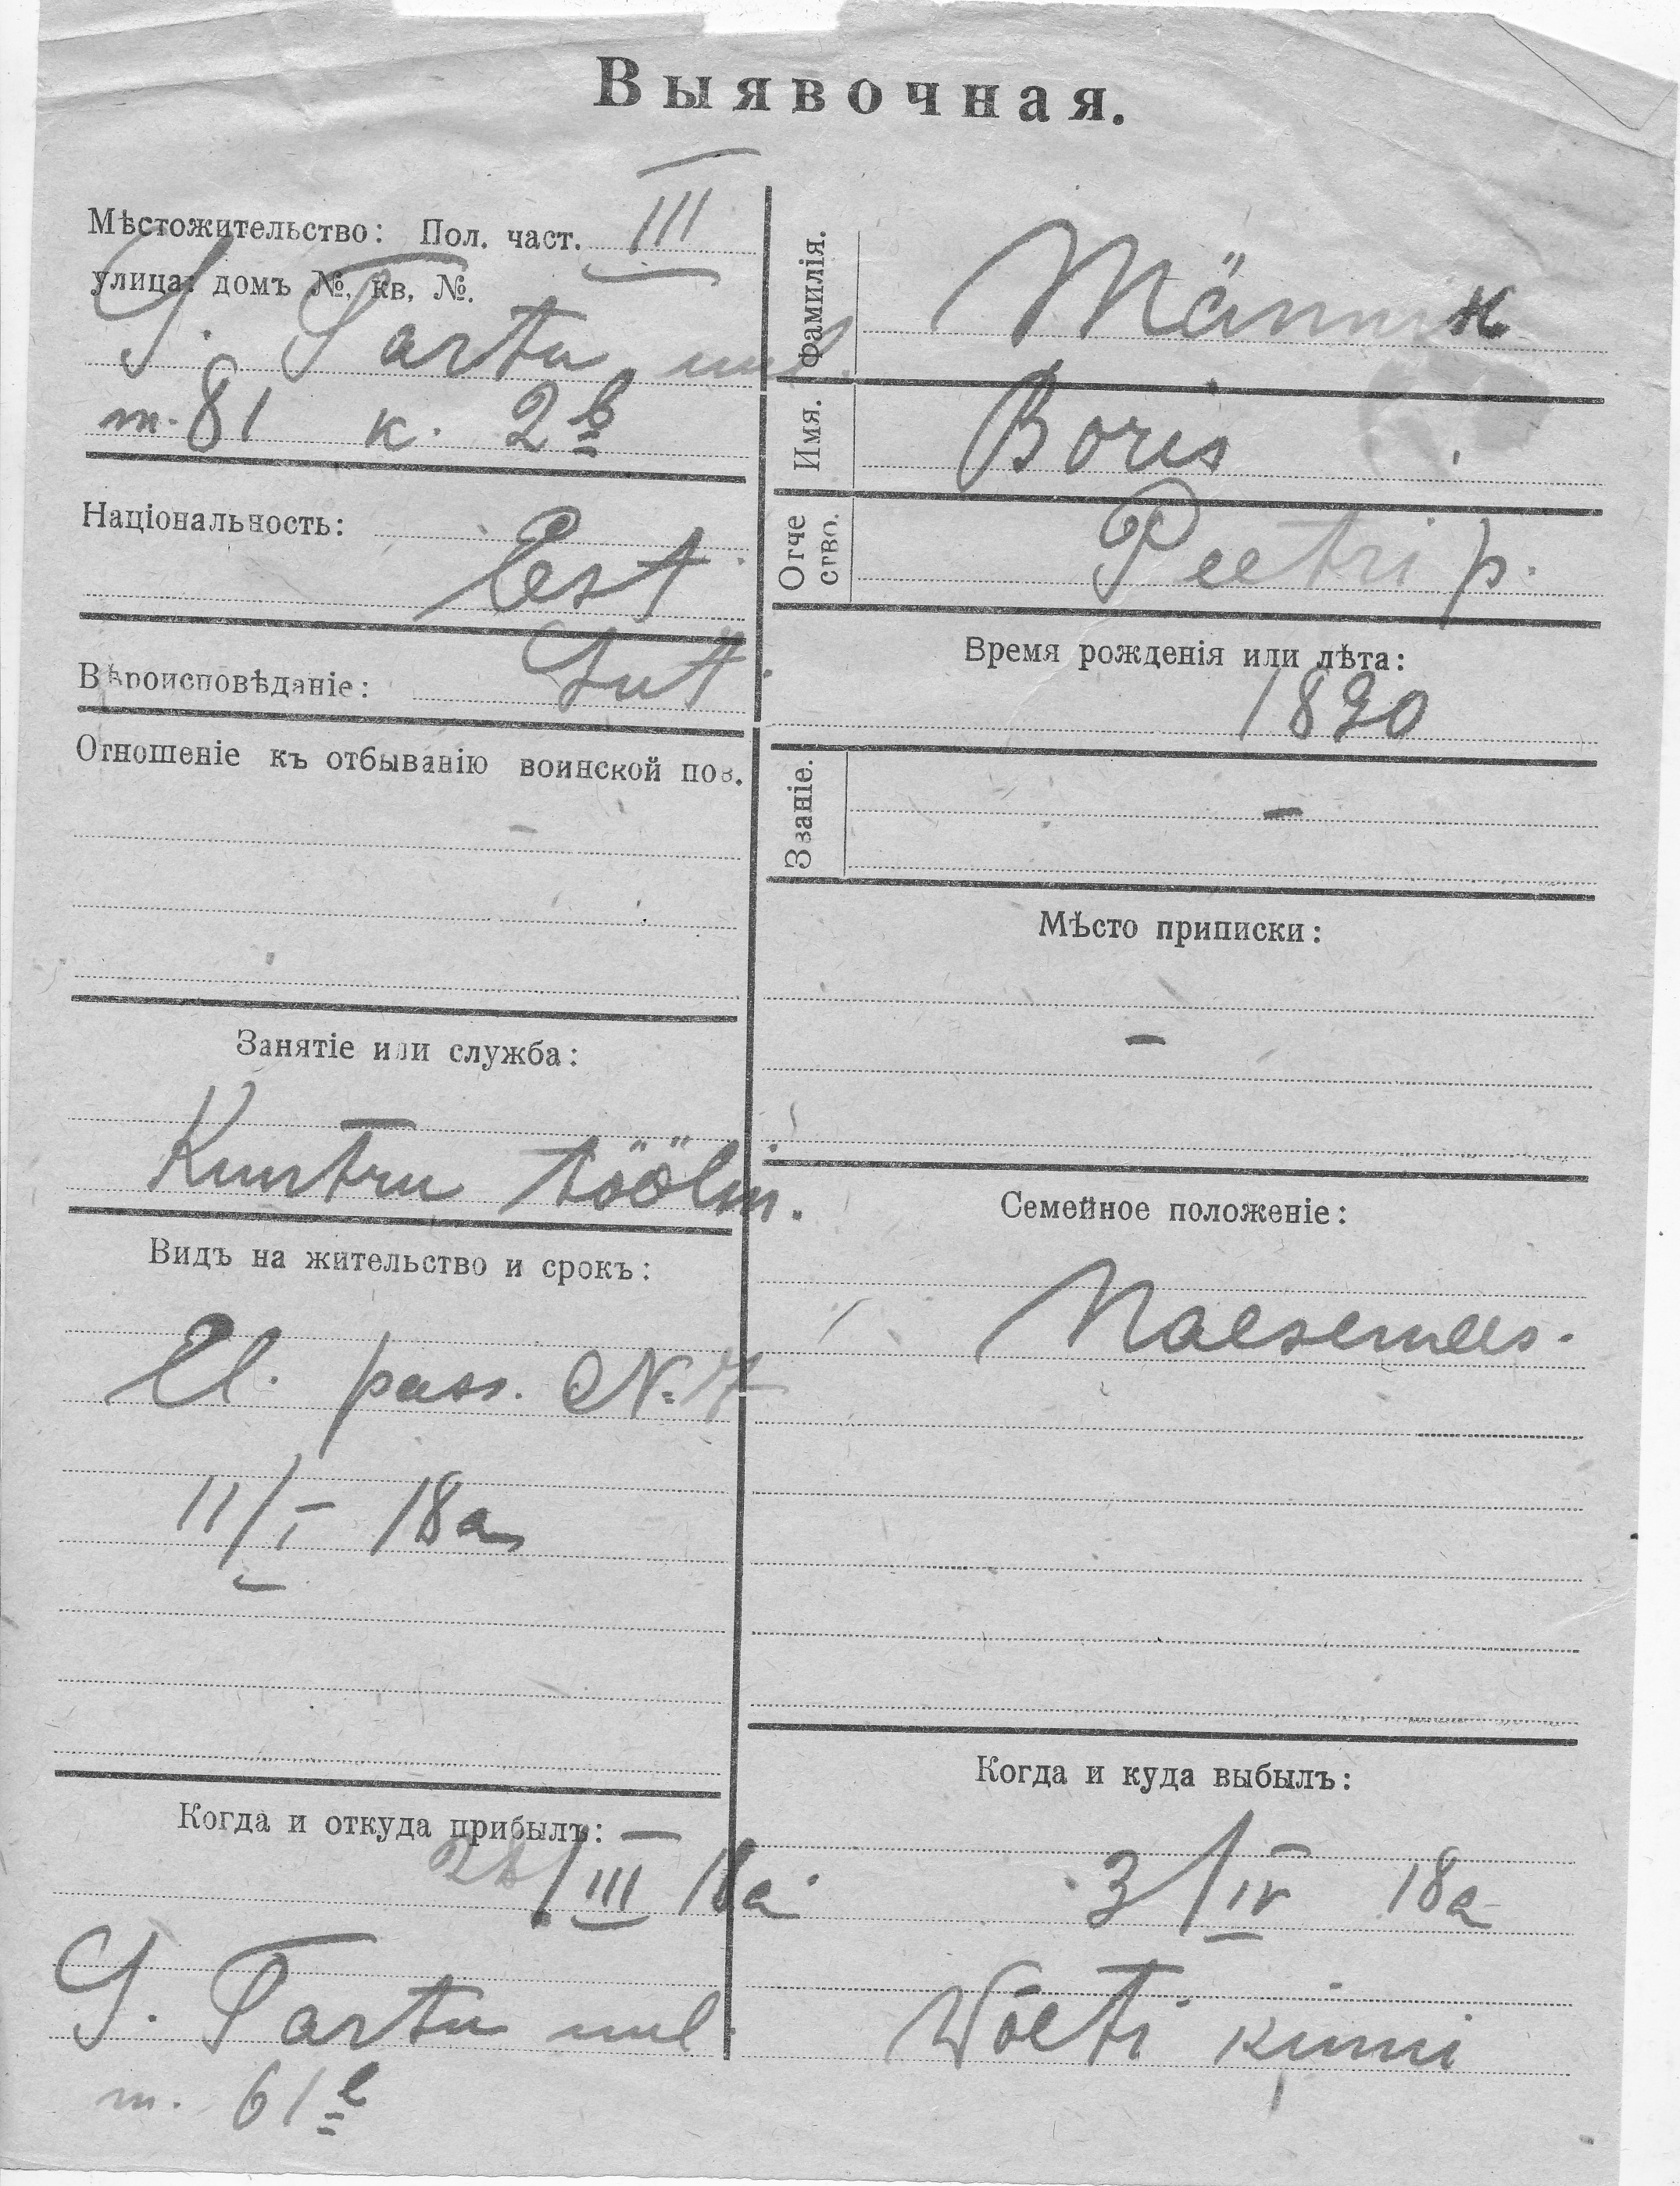 Выявочная.
Мѣстожительство: Пол. част. III
улица: домъ №, кв, №.
S. Tartu uul.
m. 81 к. 2 b
Національность:
Est
Вѣроисповѣданіе: Lut.
Отношеніе къ отбыванію воинской пов.
Занятіе или служба:
Kuntru tööl
Видъ на жительство и срокъ:
El. pass. N. 7
11/I 18a
Когда и откуда прибылъ:
/III 18a
S. Tartu uul.
m. 61
Фамилія. Männik
Имя. Boris
Отчество. Peetri p.
Время рожденія или лѣта:
1890
Званіе. —
Мѣсто приписки:
—
Семейное положеніе:
Naesemees.
Когда и куда выбылъ:
3/IV 18a
Wõeti kinni